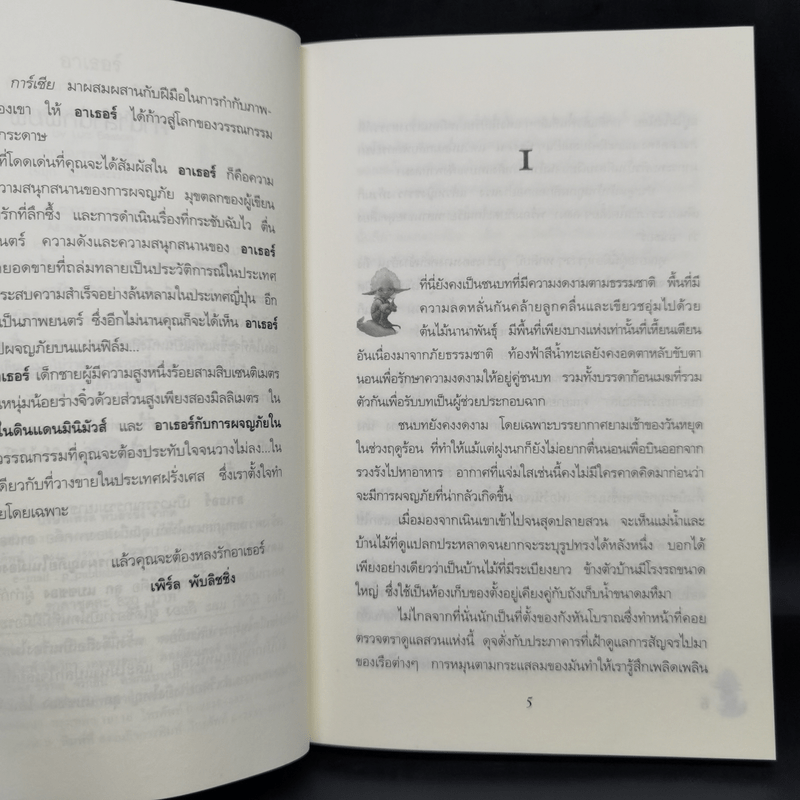 การ์เซีย มาผสมผสานกับฝีมือในการกำกับภาพ-
องเขา ให้ อาเธอร์ ได้ก้าวสู่โลกของวรรณกรรม
กระดาษ
ที่โดดเด่นที่คุณจะได้สัมผัสใน อาเธอร์ ก็คือความ
วามสนุกสนานของการผจญภัย มุขตลกของผู้เขียน
รักที่ลึกซึ้ง และการดำเนินเรื่องที่กระชับฉับไว ตื่น
นตร์ ความดังและความสนุกสนานของ อาเธอร์
ายอดขายที่ถล่มทลายเป็นประวัติการณ์ในประเทศ
ระสบความสำเร็จอย่างล้นหลามในประเทศญี่ปุ่น อีก
เป็นภาพยนตร์ ซึ่งอีกไม่นานคุณก็จะได้เห็น อาเธอร์
ปผจญภัยบนแผ่นฟิล์ม...
าเธอร์ เด็กชายผู้มีความสูงหนึ่งร้อยสามสิบเซนติเมตร
นหนุ่มน้อยร่างจิ๋วด้วยส่วนสูงเพียงสองมิลลิเมตร ใน
ในดินแดนมินิมัวส์ และ อาเธอร์กับการผจญภัยใน
วรรณกรรมที่คุณจะต้องประทับใจจนวางไม่ลง...ใน
เดียวกับที่วางขายในประเทศฝรั่งเศส ซึ่งเราตั้งใจทำ
ยโดยเฉพาะ
แล้วคุณจะต้องหลงรักอาเธอร์
เพิร์ล พับลิชชิ่ง
I
ที่นี่ยังคงเป็นชนบทที่มีความงดงามตามธรรมชาติ พื้นที่มี
ความลดหลั่นกันคล้ายลูกคลื่นและเขียวชอุ่มไปด้วย
ต้นไม้นานาพันธุ์ มีพื้นที่เพียงบางแห่งเท่านั้นที่เหี้ยนเตียน
อันเนื่องมาจากภัยธรรมชาติ ท้องฟ้าสีน้ำทะเลยังคงอดตาหลับขับตา
นอนเพื่อรักษาความงดงามให้อยู่คู่ชนบท รวมทั้งบรรดาก้อนเมฆที่รวม
ตัวกันเพื่อรับบทเป็นผู้ช่วยประกอบฉาก
ชนบทยังคงงดงาม โดยเฉพาะบรรยากาศยามเช้าของวันหยุด
ในช่วงฤดูร้อน ที่ทำให้แม้แต่ฝูงนกก็ยังไม่อยากตื่นนอนเพื่อบินออกจาก
รวงรังไปหาอาหาร อากาศที่แจ่มใสเช่นนี้คงไม่มีใครคาดคิดมาก่อนว่า
จะมีการผจญภัยที่น่ากลัวเกิดขึ้น
เมื่อมองจากเนินเขาเข้าไปจนสุดปลายสวน จะเห็นแม่น้ำและ
บ้านไม้ที่ดูแปลกประหลาดจนยากจะระบุรูปทรงได้หลังหนึ่ง บอกได้
เพียงอย่างเดียวว่าเป็นบ้านไม้ที่มีระเบียงยาว ข้างตัวบ้านมีโรงรถขนาด
ใหญ่ ซึ่งใช้เป็นห้องเก็บของตั้งอยู่เคียงคู่กับถังเก็บน้ำขนาดมหึมา
ไม่ไกลจากที่นั่นนักเป็นที่ตั้งของกังหันโบราณซึ่งทำหน้าที่คอย
ตรวจตราดูแลสวนแห่งนี้ ดุจดั่งกับประภาคารที่เฝ้าดูแลการสัญจรไปมา
ของเรือต่างๆ การหมุนตามกระแสลมของมันทำให้เรารู้สึกเพลิดเพลิน
5